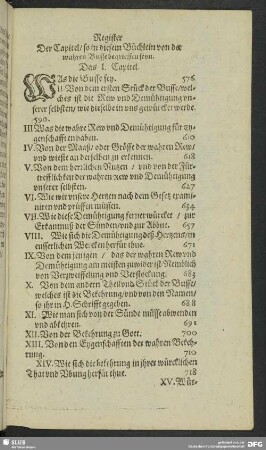 Register
Der Capitel/ so in diesem Büchlein von der
wahren Busse begriffen seyn.
Das I. Capitel.
WAs die Busse sey. 576
II. Von dem ersten Stück der Busse/ wel-
ches ist die Rew vnd Demühtigung vn-
serer selbsten/ wie dieselbe in vns gewürcket werde.
590.
III. Was die wahre Rew vnd Demühtigung für ey-
genschafften haben. 610
IV. Von der Maaß/ oder Grösse der wahren Rew/
vnd wie sie an derselben zu erkennen. 618
V. Von dem herrlichen Nutzen/ vnd von der Für-
trefflichkeit der wahren rew vnd Demühtigung
vnserer selbsten. 627
VI. Wie wir vnsere Hertzen nach dem Gesetz exami-
niren vnd prüffen müssen. 634
VII. Wie diese Demühtigung ferner würcket/ zur
Erkantnuß der Sünden/ vnd zur Abbitt. 657
VIII. Wie sich die Demühtigung deß Hertzens/ in
eusserlichen Wercken herfür thue. 671
IX. Von dem jenigen/ das der wahren Rew vnd
Demühtigung am meisten zuwider ist: Nemblich
von Verzweiffelung vnd Verstockung. 683
X. Von dem andern Theil vnd Stück der Busse/
welches ist die Bekehrung/ vnd von den Namen/
so ihr in H. Schrifft gegeben. 688
XI. Wie man sich von der Sünde müsse abwenden
vnd abkehren. 691
XII. Von der Bekehrung zu Gott. 700
XIII. Von den Eygenschafften der wahren Bekeh-
rung. 710
XIV. Wie sich die bekehrung in ihrer würcklichen
That vnd Vbung herfür thue. 718
XV. Wür-
SLUB
DFG